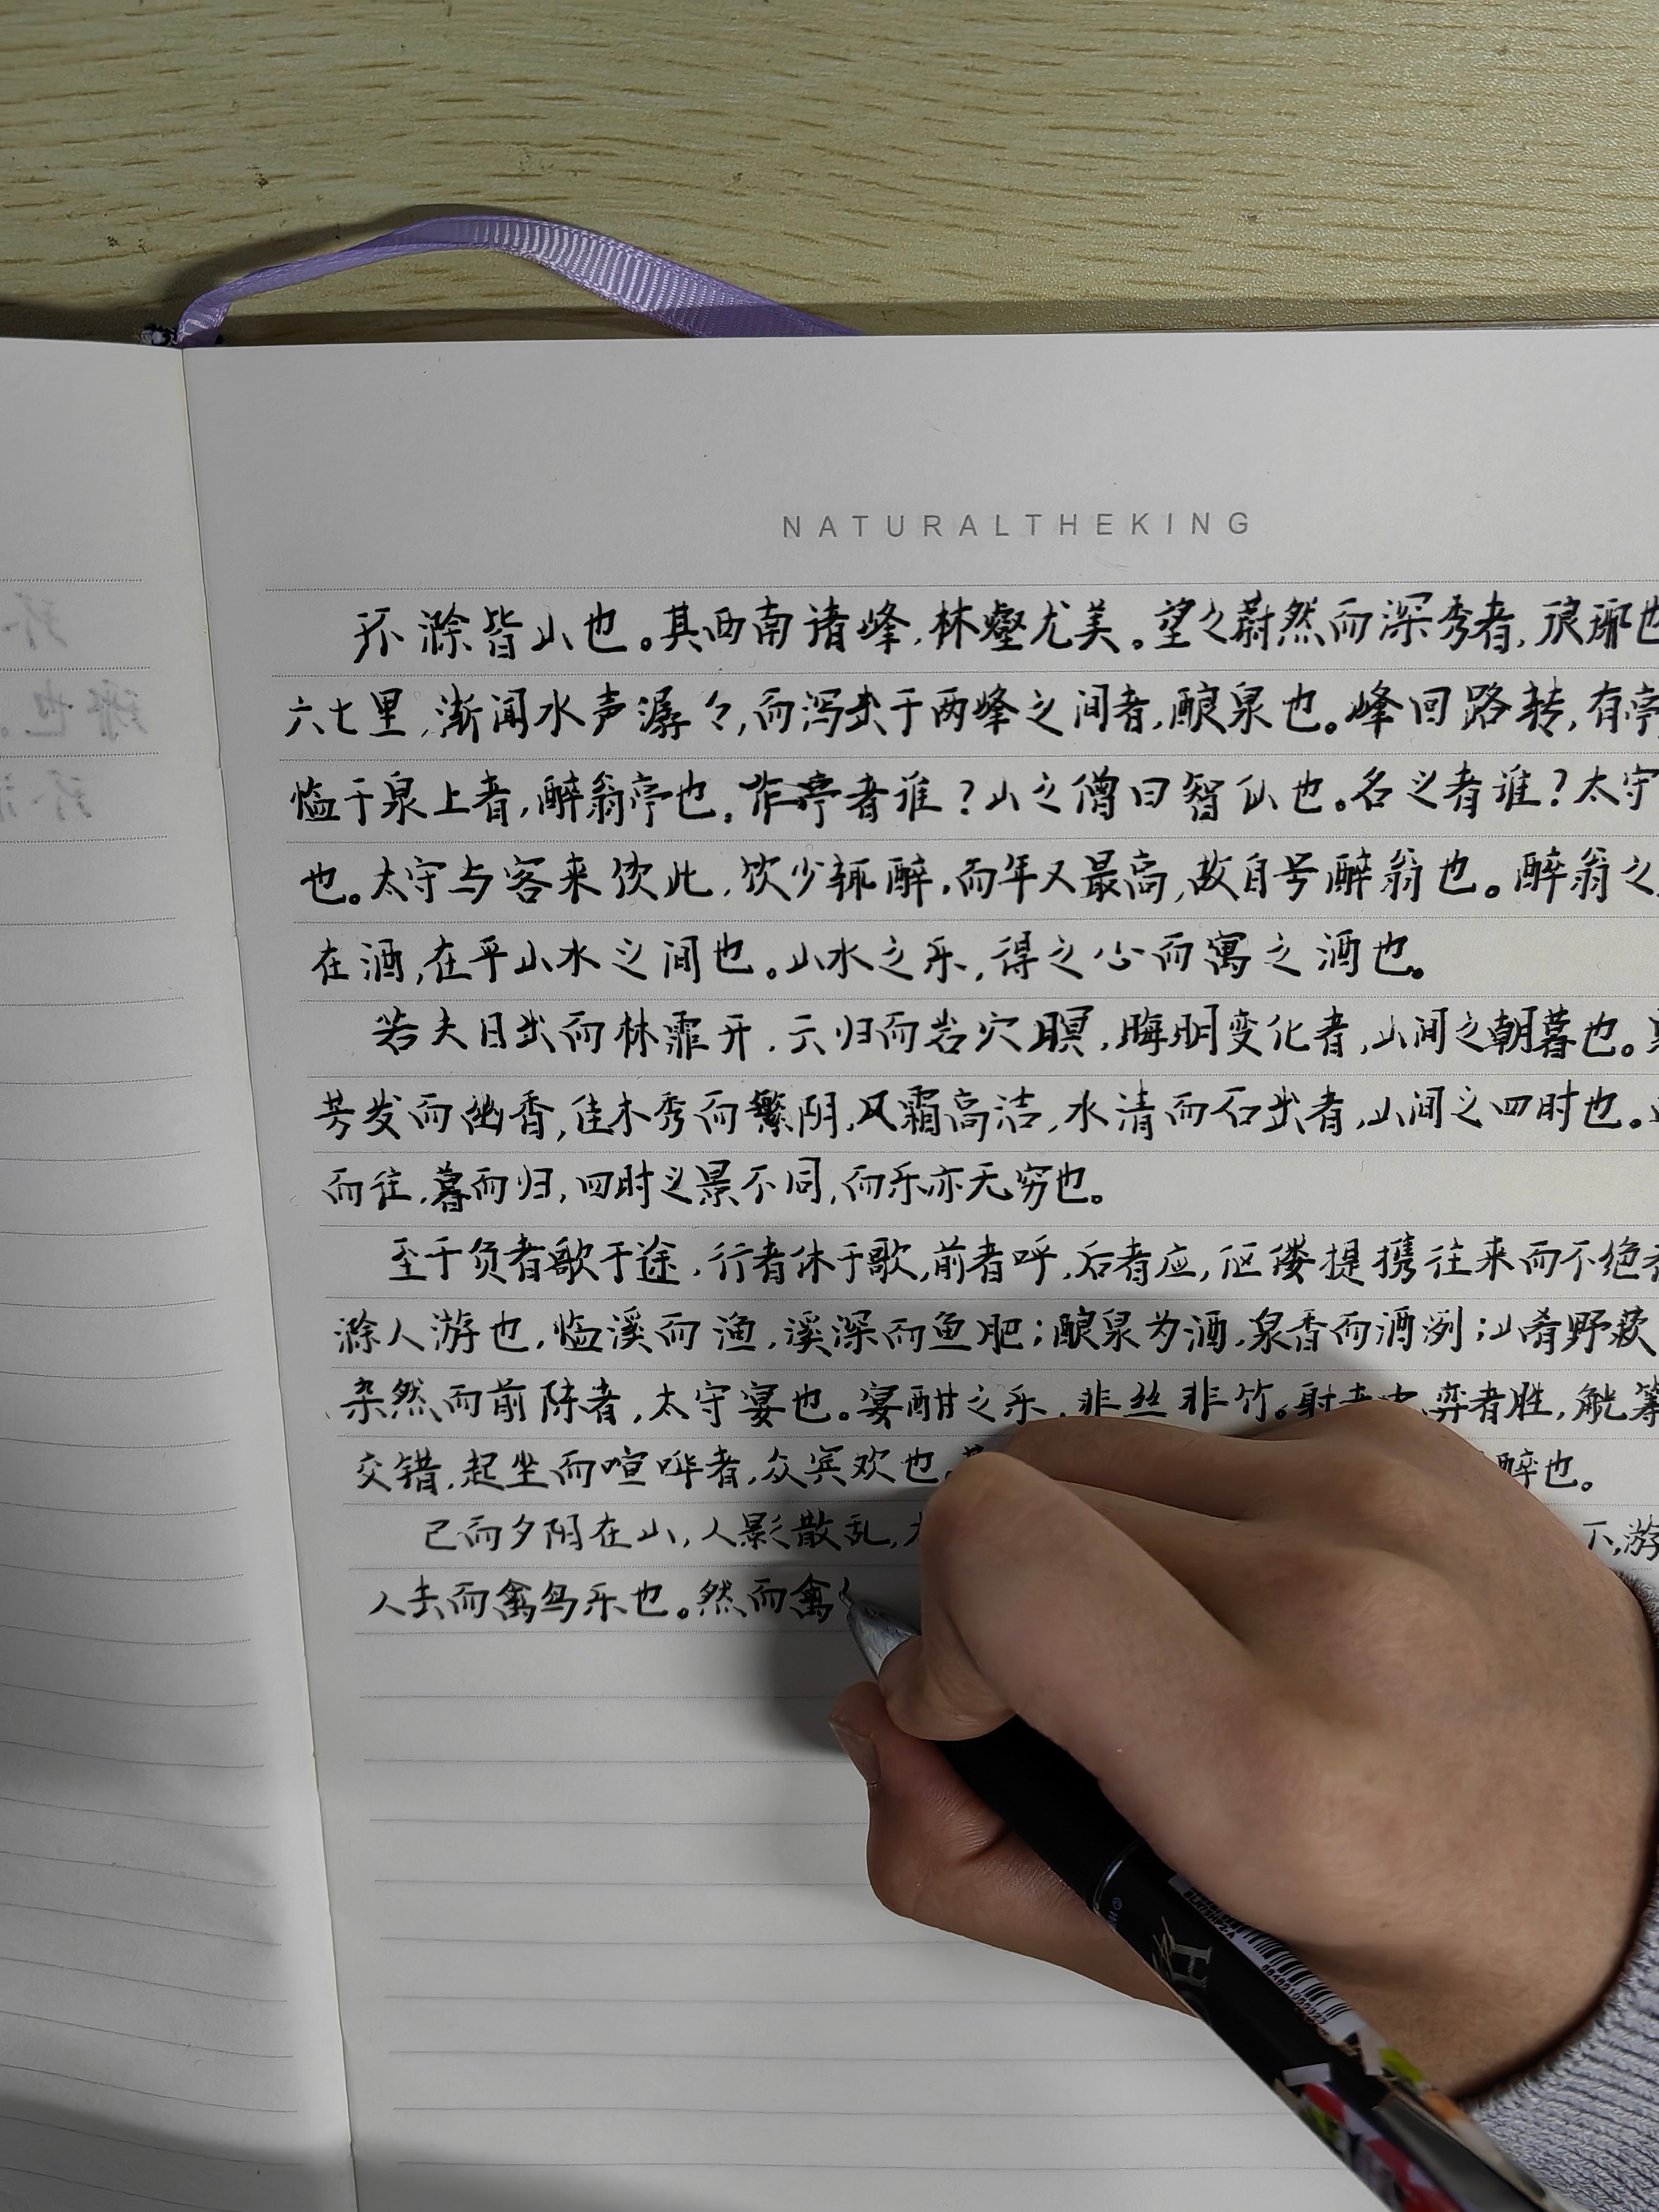 NATURALTHEKING
环滁皆山也。其西南诸峰,林壑尤美。望之蔚然而深秀者,琅琊也
六七里,渐闻水声潺々,而泻出于两峰之间者,酿泉也。峰回路转,有亭
临于泉上者,醉翁亭也。作亭者谁?山之僧曰智仙也。名之者谁?太守
也。太守与客来饮此,饮少辄醉,而年又最高,故自号醉翁也。醉翁之
在酒,在乎山水之间也。山水之乐,得之心而寓之酒也。
若夫日出而林霏开,云归而岩穴瞑,晦明变化者,山间之朝暮也。
芳发而幽香,佳木秀而繁阴,风霜高洁,水清而石出者,山间之四时也。
而往,暮而归,四时之景不同,而乐亦无穷也。
至于负者歌于途,行者休于歌,前者呼,后者应,伛偻提携往来而不绝
滁人游也,临溪而渔,溪深而鱼肥;酿泉为酒,泉香而酒洌;山肴野蔌
杂然而前陈者,太守宴也。宴酣之乐,非丝非竹。射者中,弈者胜,觥筹
交错,起坐而喧哗者,众宾欢也。 醉也。
已而夕阴在山,人影散乱, 下,游
人去而禽鸟乐也。然而禽